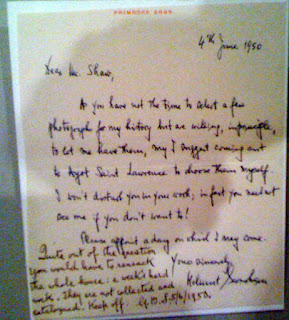 PRIMROSE
4th June 1950
Dear Mr. Shaw,
As you have not the time to select a few
photograph for my history but are willing, in principle,
to let me have them, may I suggest coming out
to Ayot Saint Lawrence to choose them myself.
I won't disturb you in your work; in fact you need not
see me if you don't want to!
Please appoint a day on which I may come.
Yours sincerely
Helmut Gernsheim
Quite out of the question
you would have to ransack
the whole house: a week's hard
work. They are not collected and
catalogued. Keep off. G.B.S. 5/6/1950.